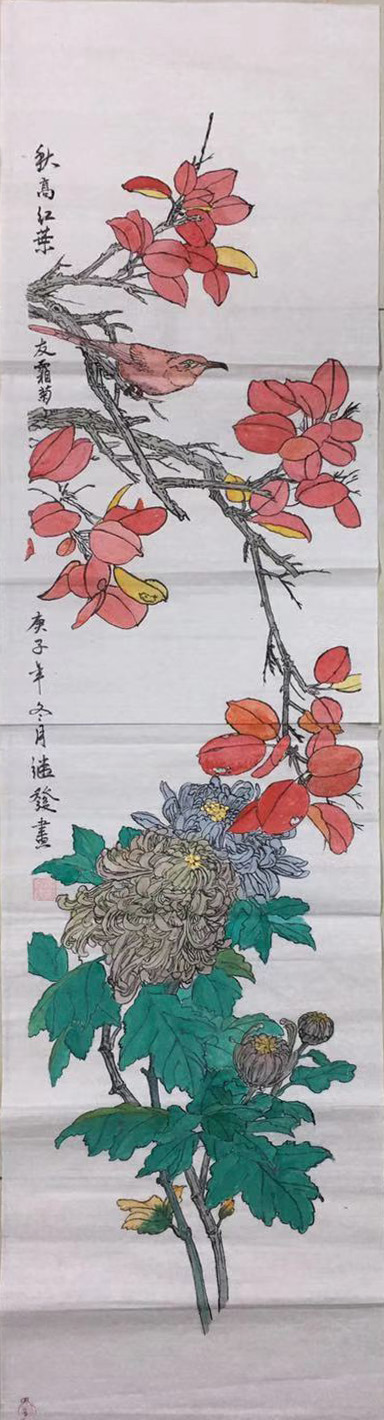 秋高红叶友霜菊
庚子年冬月继發畫